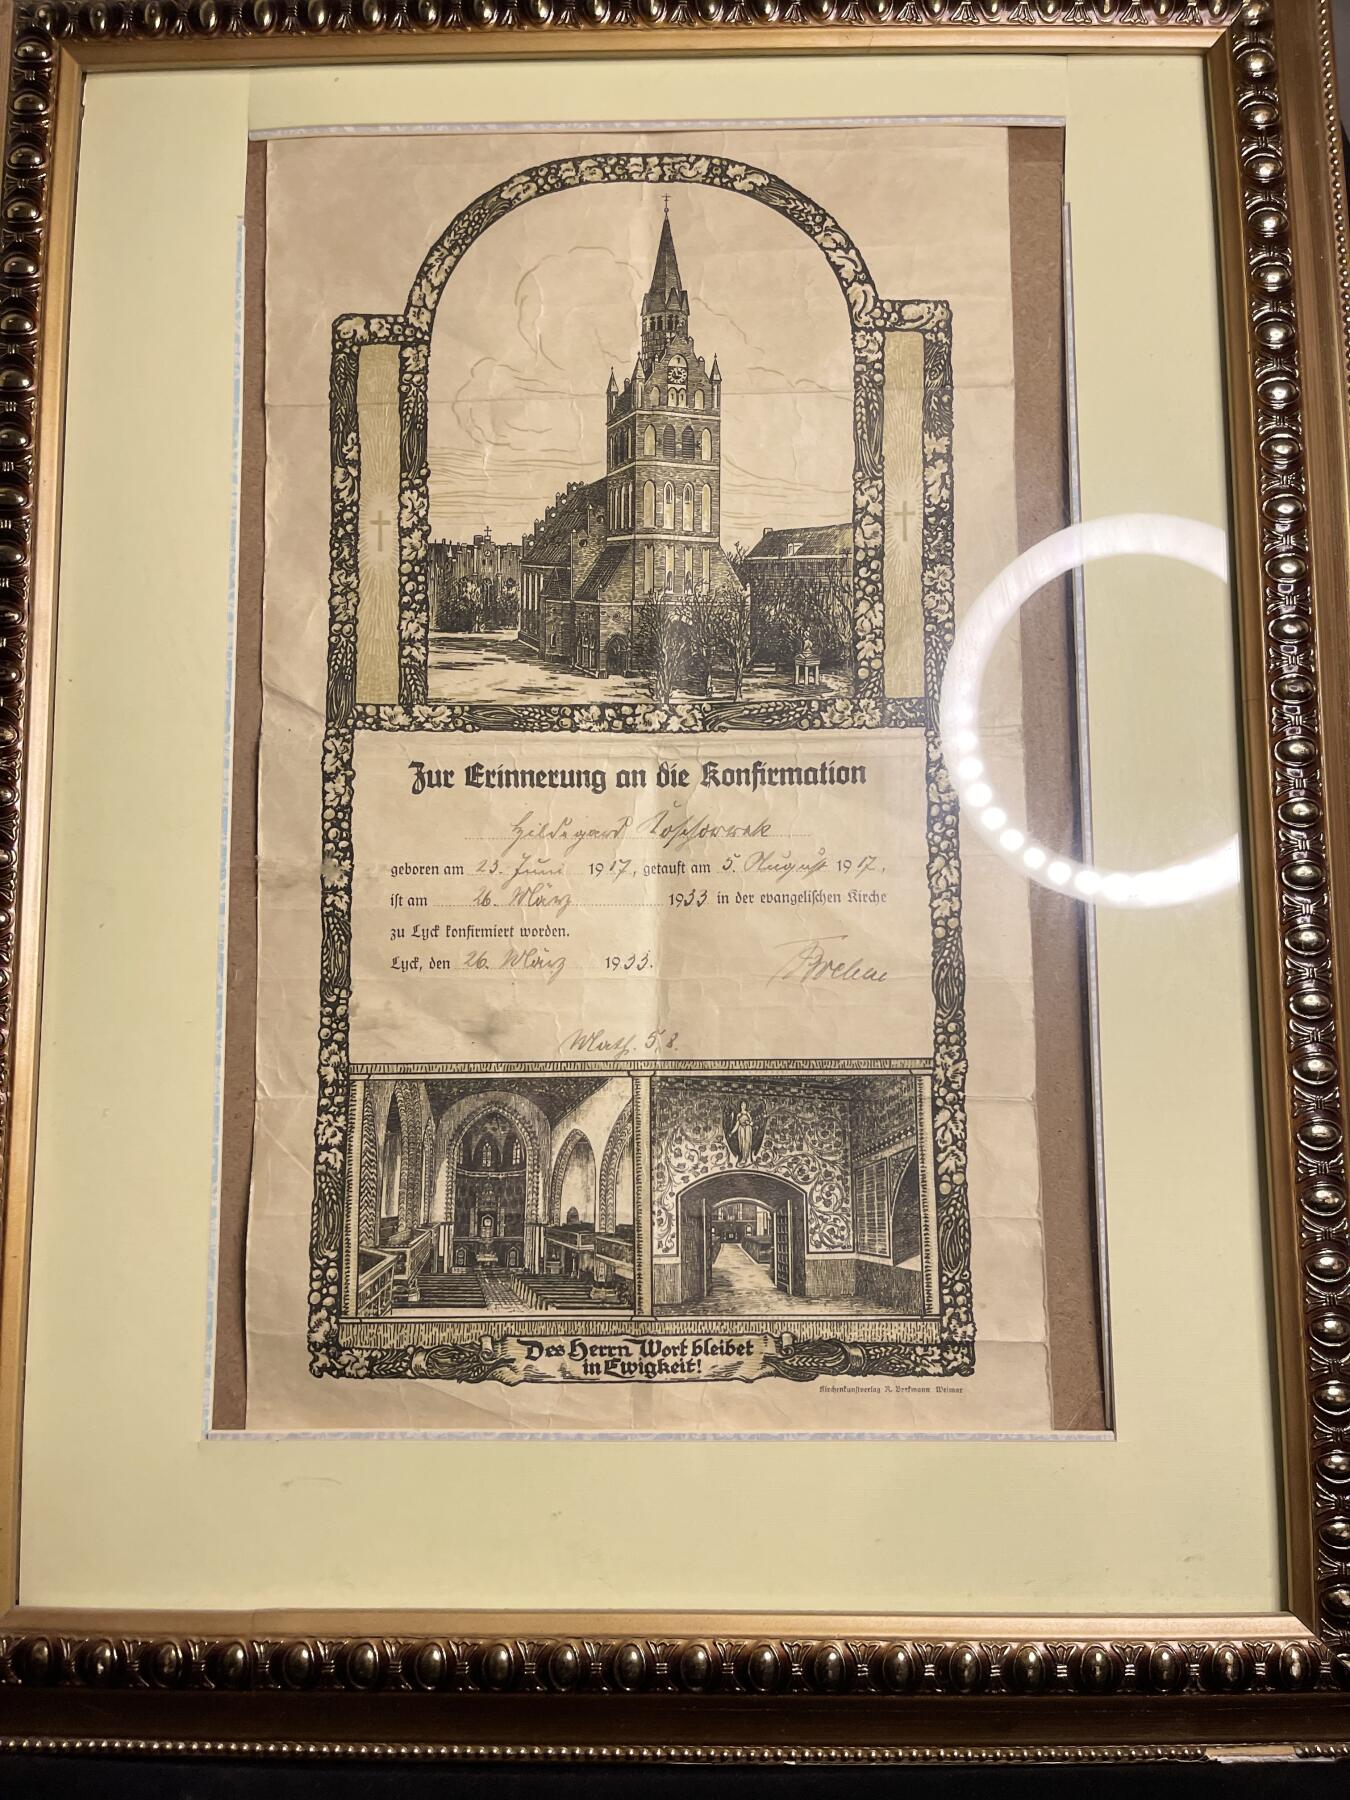 Zur Erinnerung an die Konfirmation
Hildegard Koschorrek
geboren am 23. Juni 1917, getauft am 5. August 1917,
ist am 26. März 1933 in der evangelischen Kirche
zu Lyck konfirmiert worden.
Lyck, den 26. März 1933.
Math. 5,8.
Des Herrn Wort bleibet
in Ewigkeit!
Kirchenkunstverlag R. Berkmann Weimar